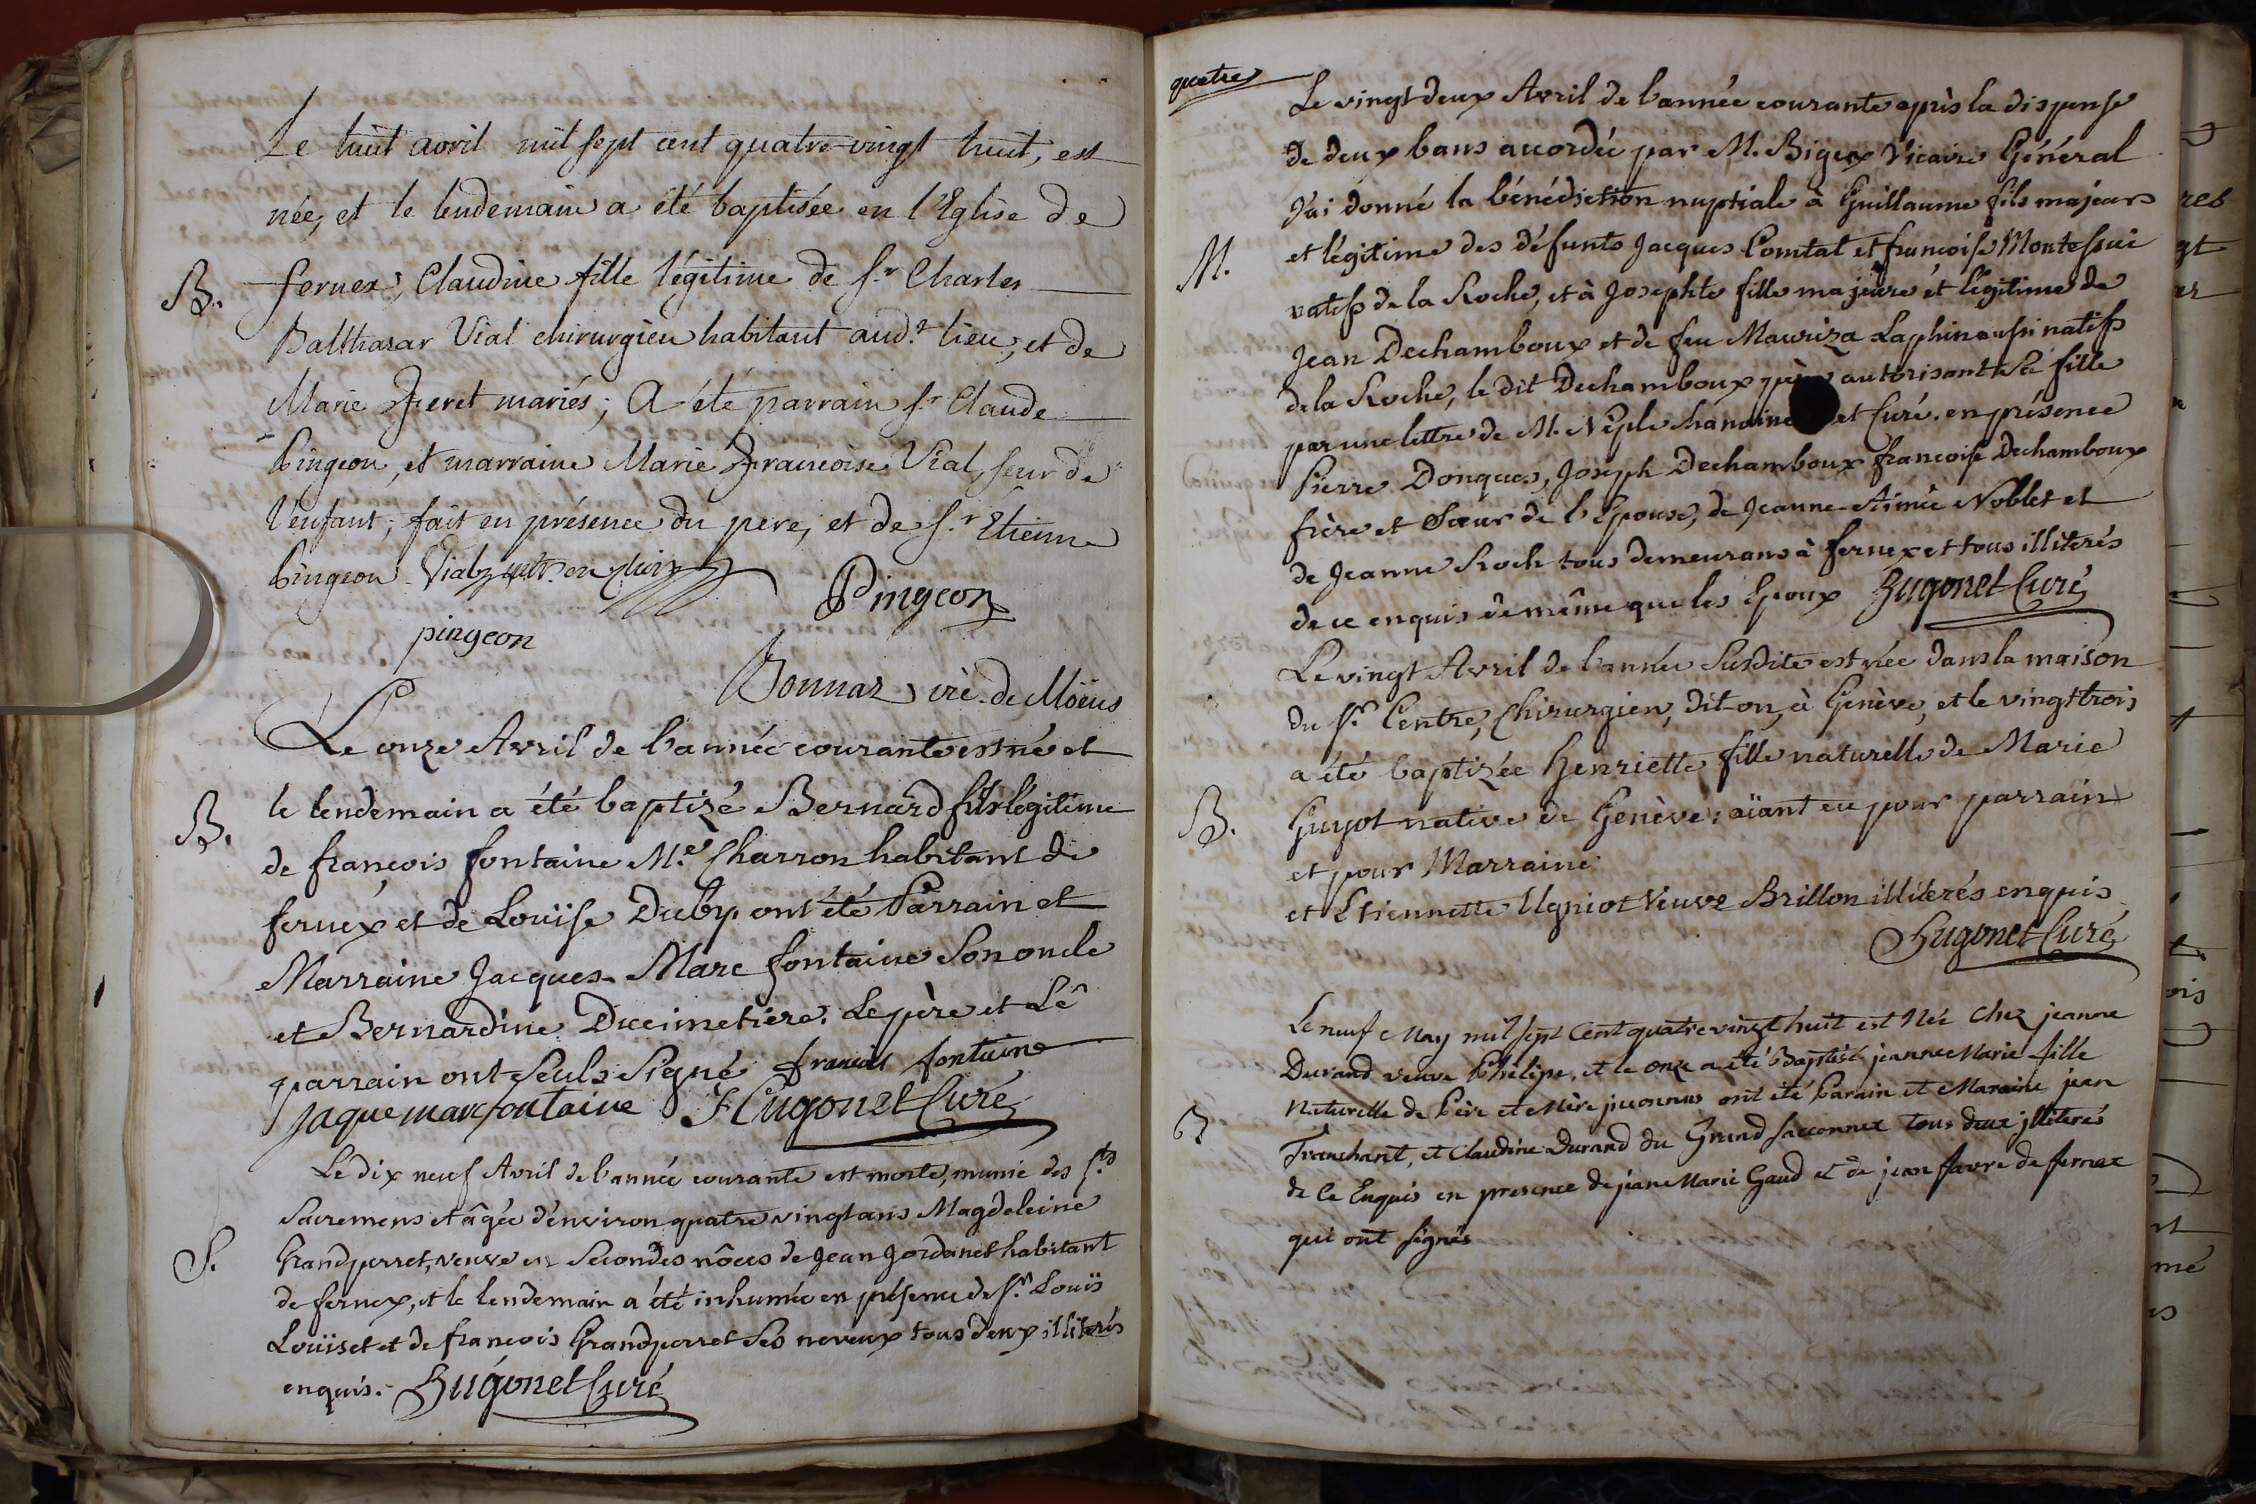 Le huit avril mil sept cent quatre-vingt huit, est
née, et le lendemain a été baptisée en l'Eglise de
B. fernex, Claudine fille légitime de Sr Charles
Balthazar Vial chirurgien habitant aud.t lieu, et de
Marie Feret mariés; A été parrain Sr Claude
Pingeon, et marraine Marie Francoise Vial, seur de
l'enfant; fait en présence du pere, et de Sr Etienne
Pingeon. Vial
Pingeon
pingeon
Bonnaz vic. de Moëns
Le onze Avril de l'année courante est né et
B. le lendemain a été baptizé Bernard fils légitime
de françois fontaine M.e Charron habitant de
fernex et de Louïse Duby ont été Parrain et
Marraine Jacques-Marc fontaine Son oncle
et Bernardine Ducimetière. Le père et Le
parrain ont Seuls Signé francois fontaine
jaque marc fontaine Hugonet Curé
Le dix neuf Avril de l'année courante est morte, munie des Sts
Sacremens et âgée d'environ quatre vingt ans Magdeleine
S. Grandperret, veuve en Secondes nôces de Jean Jordanet habitant
de fernex, et le lendemain a été inhumée en présence de Sr. Louïs
Louïset et de françois Grandperret Ses neveux tous deux illiterés
enquis. Hugonet Curé
quatre
Le vingt deux Avril de l'année courante après la dispense
de deux bans accordée par M. Bigex Vicaire Général
J'ai donné la bénédiction nuptiale à Guillaume fils majeur
M. et légitime des défunts Jacques Comtat et francoise Montessui
natifs de la Roche, et à Josephte fille majeure et légitime de
Jean Dechamboux et de feu Mauriza Laphin aussi natifs
de la Roche, le dit Dechamboux père autorisant Sa fille
par une lettre de M. Nêple chanoine et Curé. en présence
Pierre Donques, Joseph Dechamboux francoise Dechamboux
frère et Sœur de l'Epouse, de Jeanne-Aimée Noblet et
de Jeanne Roch tous demeurans à fernex et tous illiterés
de ce enquis de même que les Epoux Hugonet Curé
Le vingt Avril de l'année Susdite est née dans la maison
du Sr. Centre, Chirurgien, dit-on, à Genève, et le vingt trois
a été baptizée Henriette fille naturelle de Marie
B. Guyot native de Genève; aïant eu pour parrain
et pour Marraine
et Etiennette Ugniot Veuve Brillon illiterés enquis
Hugonet Curé
Le neuf May mil Sept Cent quatre vingt huit est Née Chez jeanne
Durand veuve Phélipe, et le onze a été Baptisée jeanne Marie fille
Naturelle de Père et Mère jnconnus ont été Parain et Maraine jean
B Tranchant, et Claudine Durand du Grand Sacconnex tous deux jlliterés
de Ce Enquis en presence de jeane Marie Gaud et de jean favre de fernex
qui ont Signés